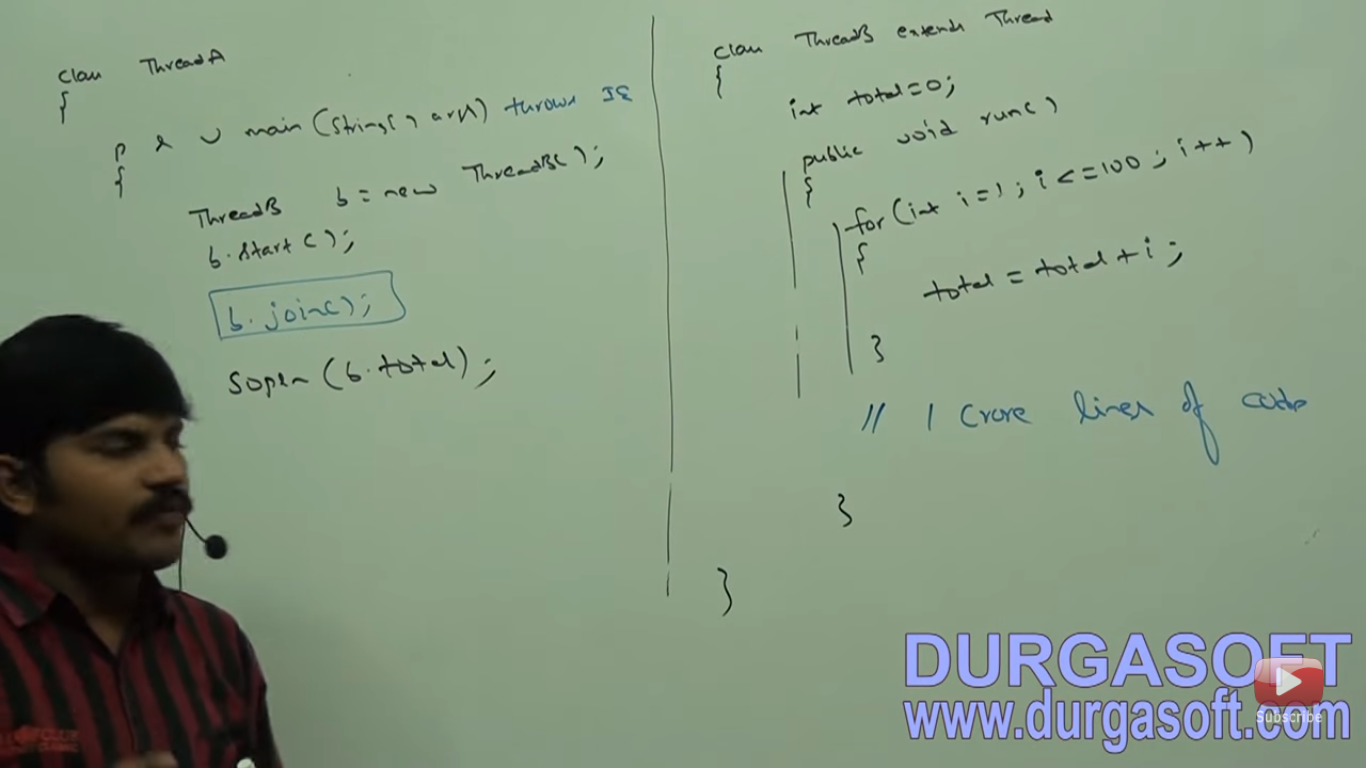 class ThreadA
{
p s v main (String[] args) throws IE
{
ThreadB b = new ThreadB();
b.start();
b.join();
sopln (b.total);
class ThreadB extends Thread
{
int total=0;
public void run()
{
for(int i=1; i<=100; i++)
{
total = total + i;
}
// 1 crore lines of code
}
}
DURGASOFT
www.durgasoft.com
Subscribe